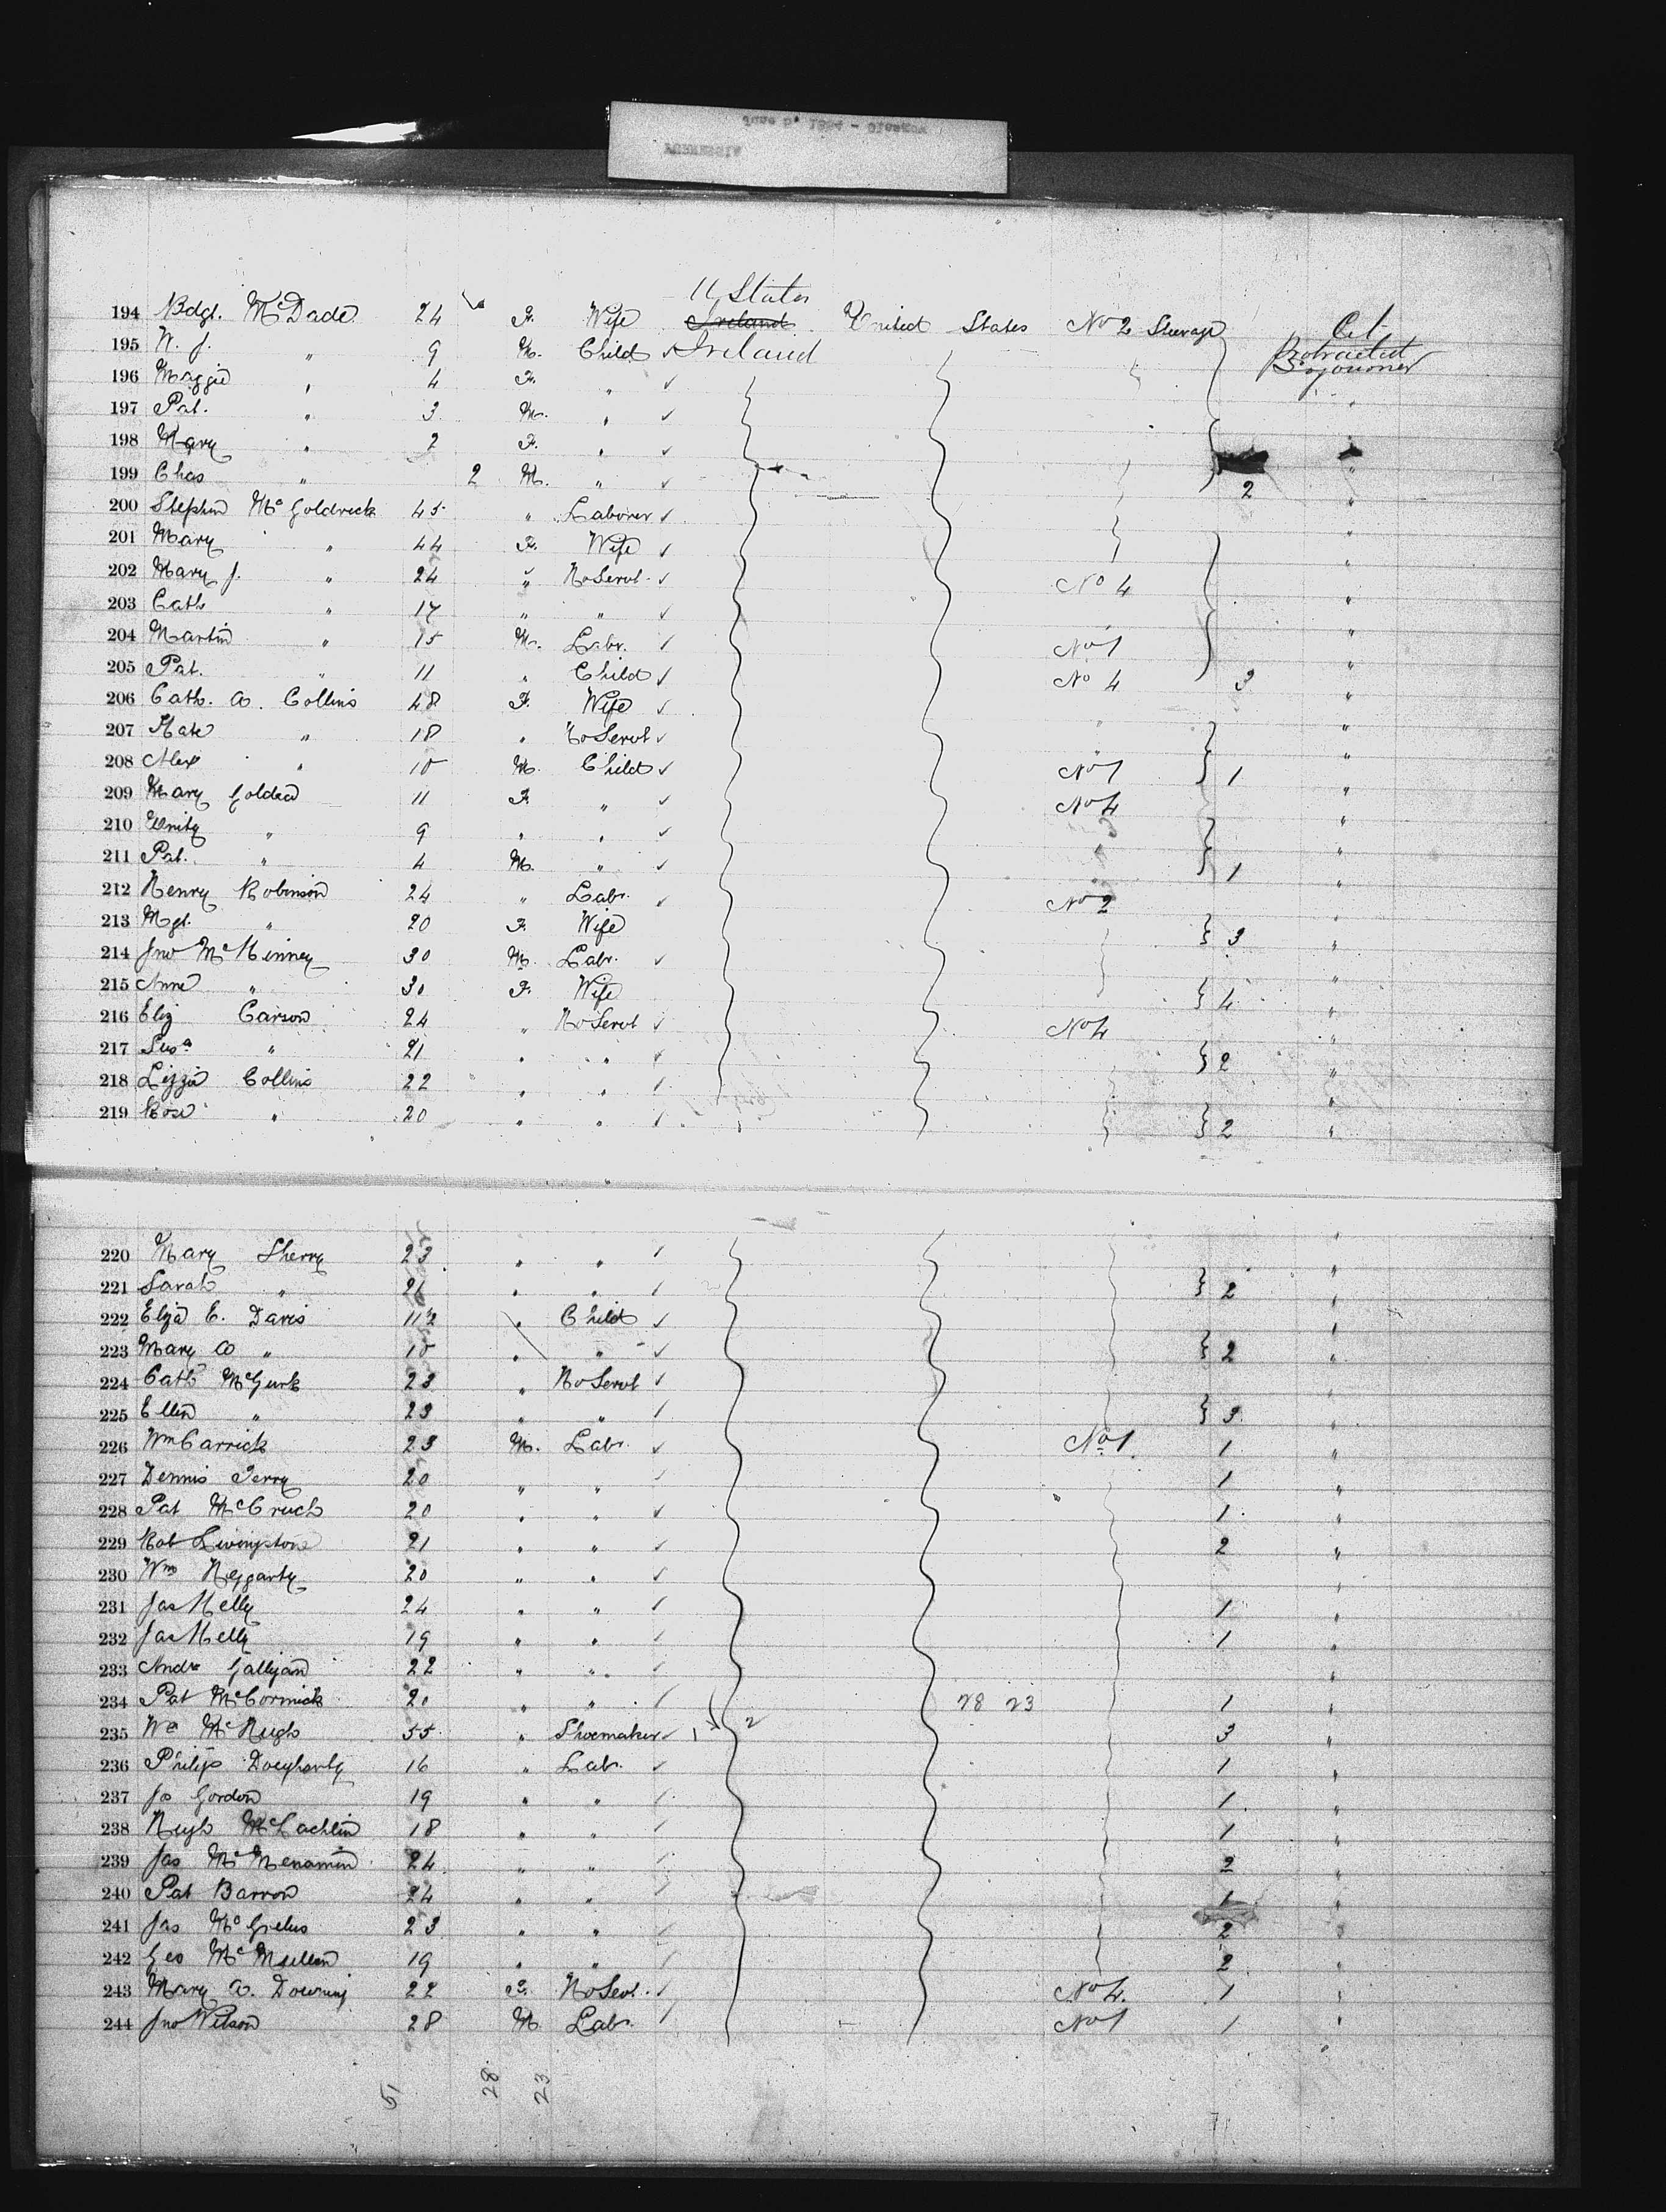 FURNESSIA
June 5, 1884 - Glasgow
U States
194 Bdgt. McDade 24 F. Wife Ireland United States No 2 Steerage Cit
195 W. J. " 9 M. Child ✓ Ireland Protracted Sojourner
196 Maggie " 4 F. " ✓
197 Pat. " 3 M. " ✓ "
198 Mary " 2 F. " ✓ "
199 Chas " 2 M. " ✓ 2 "
200 Stephen McGoldrick 45 " Laborer ✓ "
201 Mary " 44 F. Wife ✓ "
202 Mary J. " 24 " Ho Servt. ✓ No 4 "
203 Cath " 17 " " ✓ "
204 Martin " 15 M. Labr. ✓ No 1 "
205 Pat. " 11 " Child ✓ No 4 3 "
206 Cath. A. Collins 48 F. Wife ✓ " "
207 Kate " 18 " Ho Servt ✓ " "
208 Alex " 10 M. Child ✓ No 1 1 "
209 Mary Golden 11 F. " ✓ No 4 "
210 Unity " 9 " " ✓ " "
211 Pat. " 4 M. " ✓ " 1 "
212 Henry Robinson 24 " Labr. ✓ No 2 "
213 Mgt. " 20 F. Wife 3 "
214 Jno McKinney 30 M. Labr. ✓ "
215 Anne " 30 F. Wife 4 "
216 Eliz Carson 24 " Ho Servt ✓ No 4 "
217 Susa " 21 " " ✓ 2 "
218 Lizzie Collins 22 " " ✓ "
219 Rose " 20 " " ✓ 2 "
220 Mary Sherry 23 " " ✓ "
221 Sarah " 26 " " ✓ 2 "
222 Eliza E. Davis 11½ " Child ✓ "
223 Mary A " 10 " " ✓ 2 "
224 Cath McGurk 23 " Ho Servt ✓ "
225 Ellen " 23 " " ✓ 3 "
226 Wm Carrick 23 M. Labr. ✓ No 1. 1 "
227 Dennis Terry 20 " " ✓ 1 "
228 Pat McCruch 20 " " ✓ 1 "
229 Rob Livingstone 21 " " ✓ 2 "
230 Wm Heggarty 20 " " ✓ "
231 Jas Kelly 24 " " ✓ 1 "
232 Jas Kelly 19 " " ✓ 1 "
233 Andw Galligan 22 " " ✓ "
234 Pat McCormick 20 " " ✓ 28 23 1 "
235 Wm McHugh 55 " Shoemaker ✓ 2 3 "
236 Philip Dougharty 16 " Labr. ✓ 1 "
237 Jo Gordon 19 " " ✓ 1 "
238 Hugh McLachlin 18 " " ✓ 1 "
239 Jas McMenamin 24 " " ✓ 2 "
240 Pat Barron 24 " " ✓ 1 "
241 Jas 23 " " ✓ 2 "
242 Geo McMullen 19 " " ✓ 2 "
243 Mary A. Downing 22 F. Ho Sevt. ✓ No 4. 1 "
244 Jno Wilson 28 M Labr. ✓ No 1 1 "
51 28 23